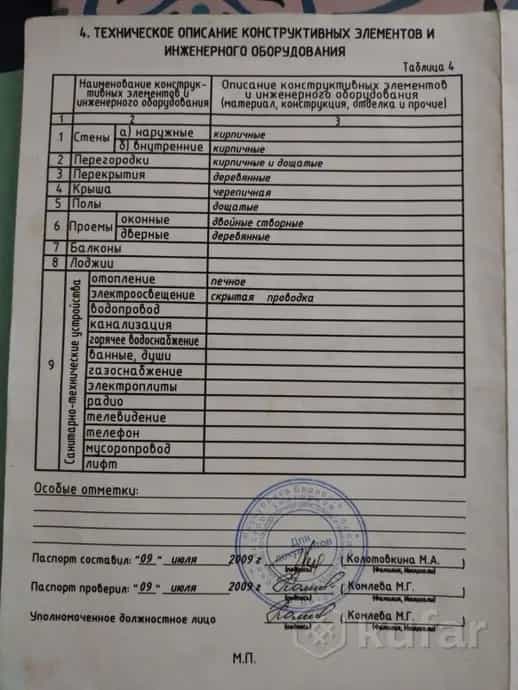 4. ТЕХНИЧЕСКОЕ ОПИСАНИЕ КОНСТРУКТИВНЫХ ЭЛЕМЕНТОВ И
ИНЖЕНЕРНОГО ОБОРУДОВАНИЯ
Таблица 4
Наименование конструк-
тивных элементов и
инженерного оборудования
Описание конструктивных элементов
и инженерного оборудования
(материал, конструкция, отделка и прочие)
1 2 3
1 Стены а) наружные кирпичные
б) внутренние кирпичные
2 Перегородки кирпичные и дощатые
3 Перекрытия деревянные
4 Крыша черепичная
5 Полы дощатые
6 Проемы оконные двойные створные
дверные деревянные
7 Балконы
8 Лоджии
9 Санитарно-технические устройства
отопление печное
электроосвещение скрытая проводка
водопровод
канализация
горячее водоснабжение
ванные, души
газоснабжение
электроплиты
радио
телевидение
телефон
мусоропровод
лифт
Особые отметки:
Для
Паспорт составил: "09" июля 2009 г. (Колотовкина М.А.
(подпись) (Фамилия, Инициалы)
Паспорт проверил: "09" июля 2009 г. (Комлева М.Г.
(подпись) (Фамилия, Инициалы)
Уполномоченное должностное лицо (Комлева М.Г.
(подпись) (Фамилия, Инициалы)
М.П.
kufar